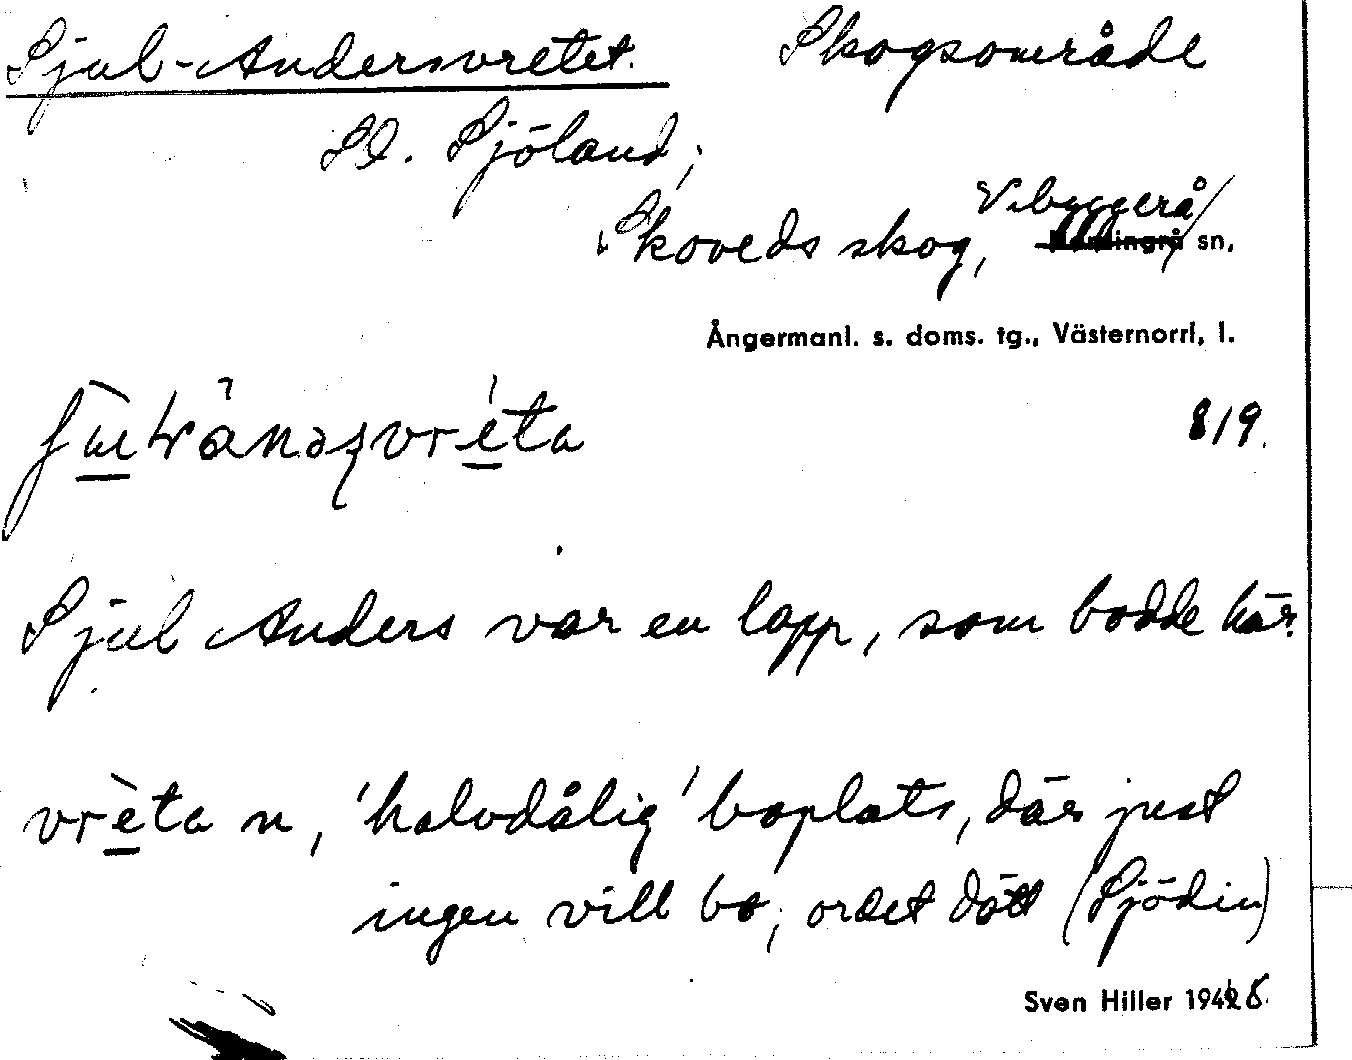 Sjul-Andersvretet. Skogsområde
St. Sjöland;
Skoveds skog, Vibyggerå
sn,
Ångermanl. s. doms. tg., Västernorrl, l.
819.
Sjul Anders var en lapp, som bodde här.
vrèta n, 'halvdålig' boplats, där just
ingen vill bo; ordet dött (Sjödin)
Sven Hiller 194